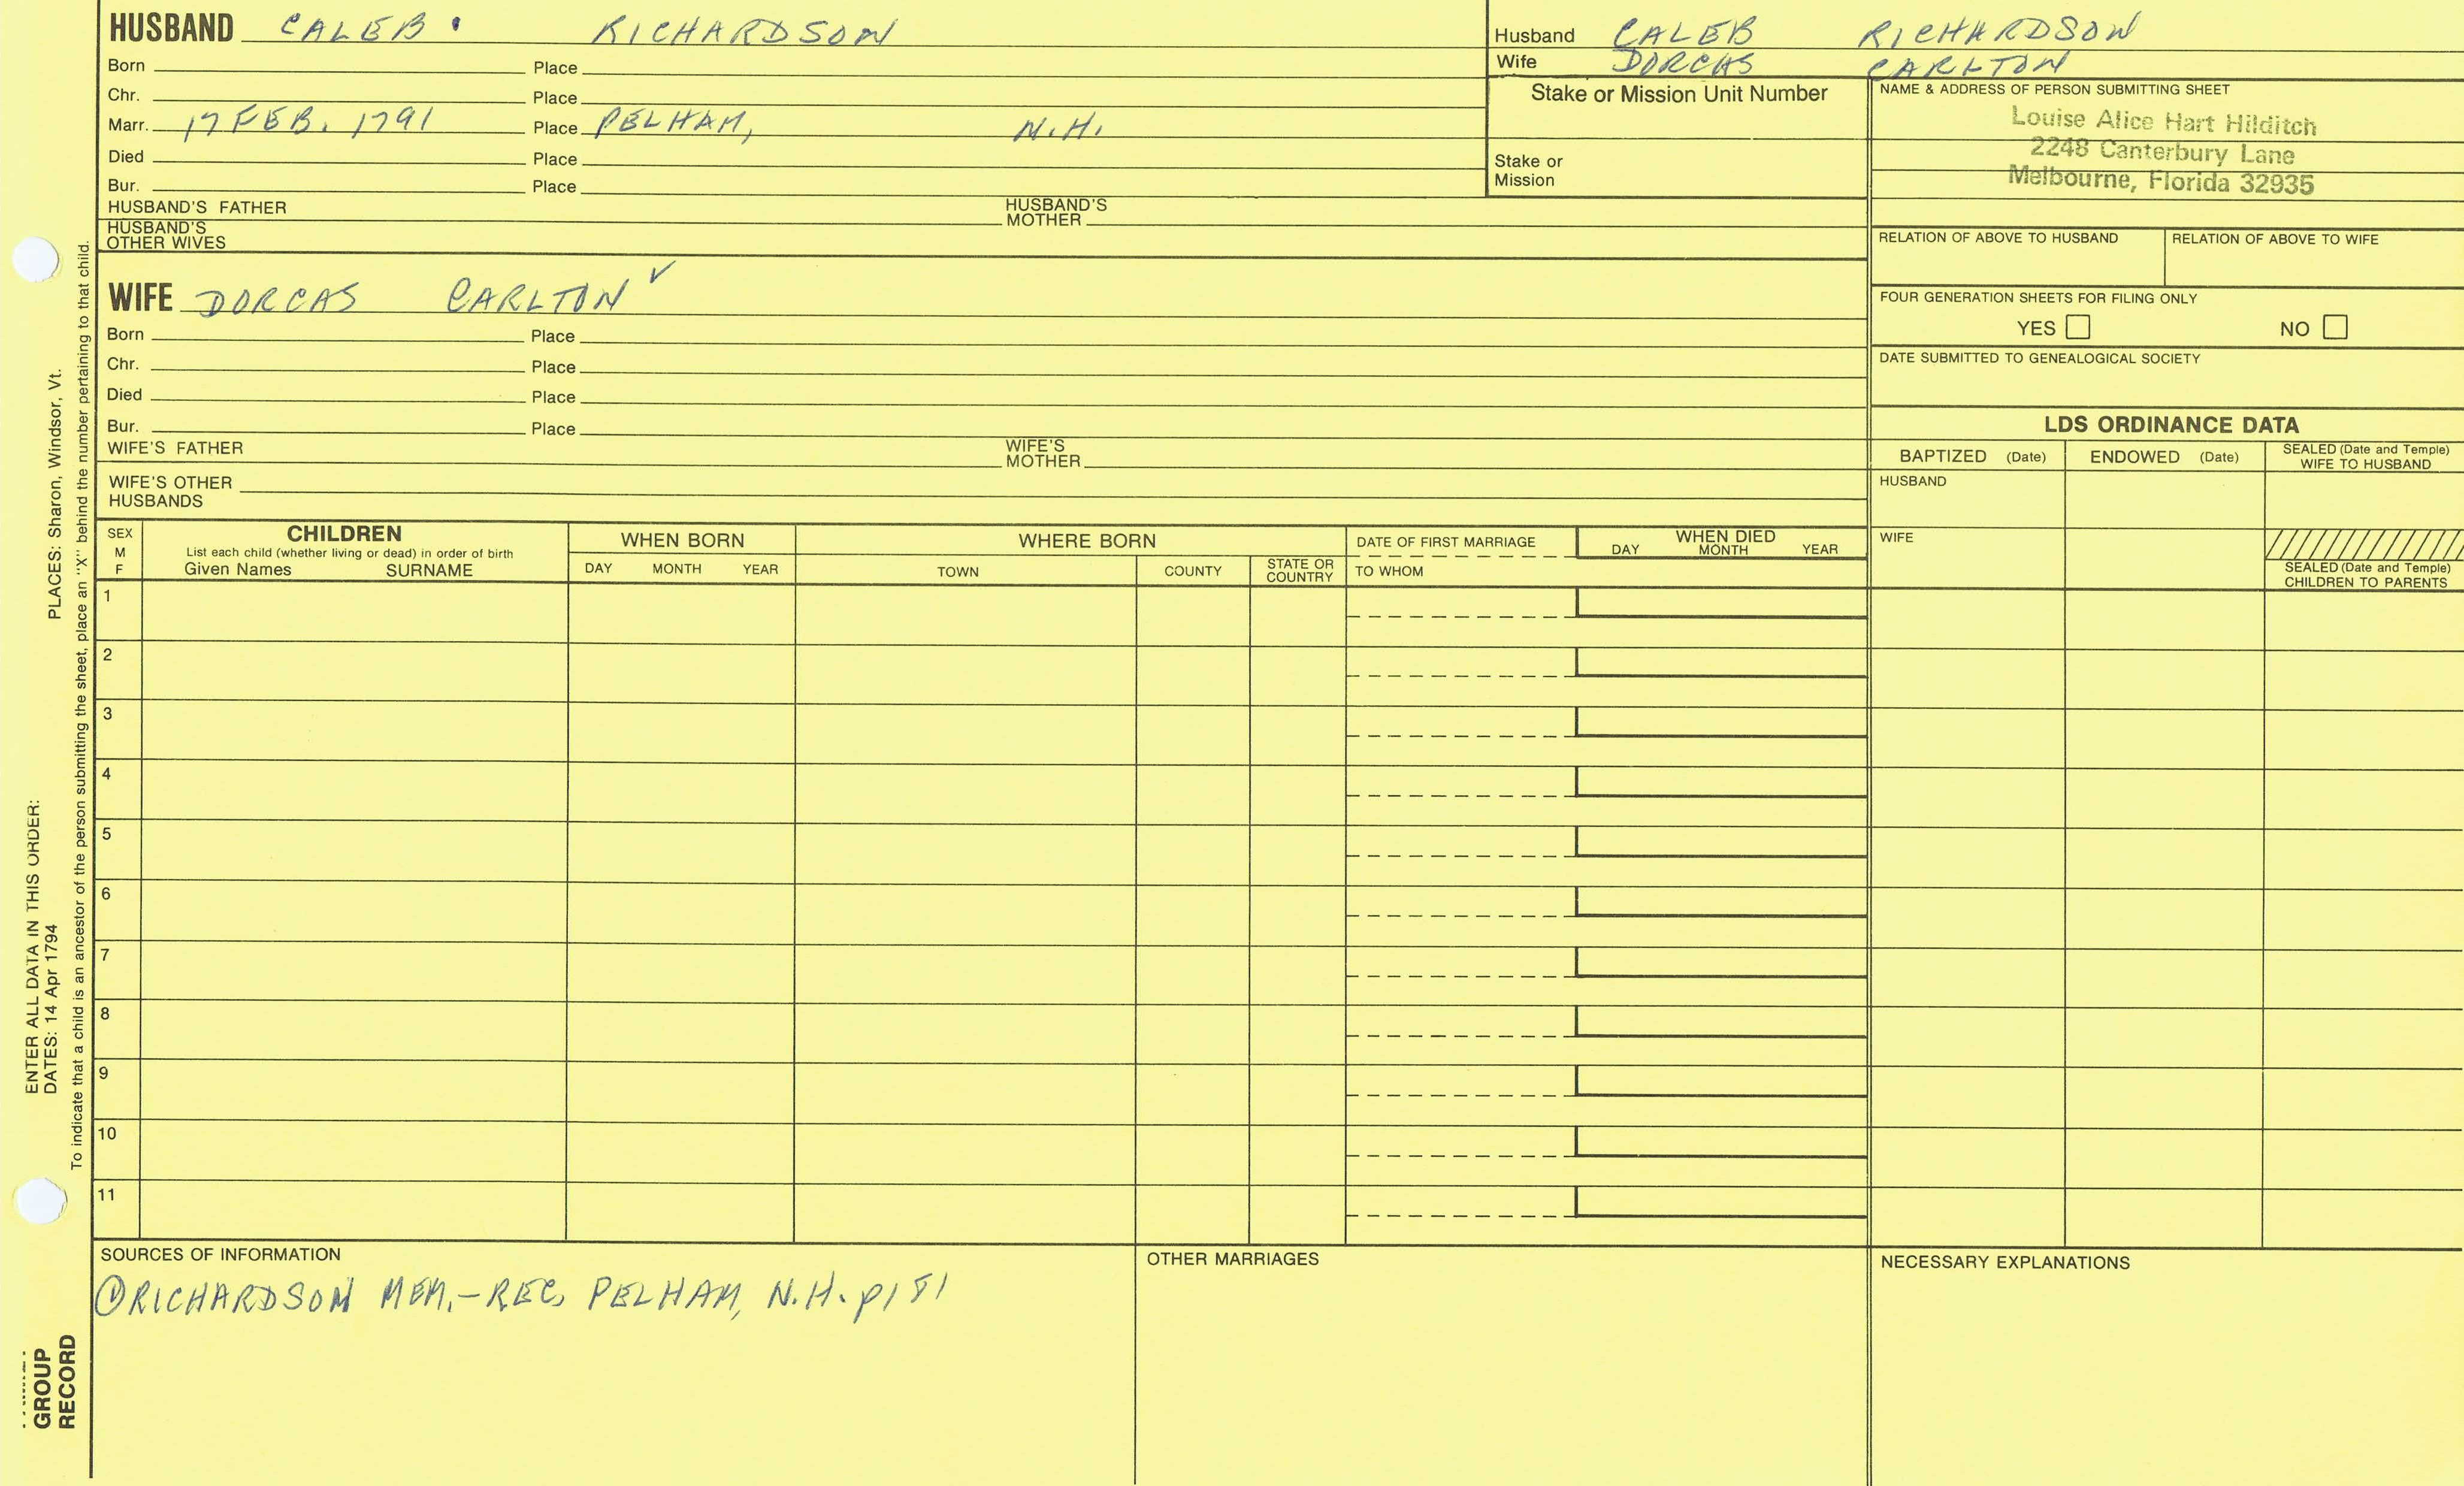 HUSBAND CALEB. RICHARDSON
Born Place
Chr. Place
Marr. 17 FEB. 1791 Place PELHAM, N.H.
Died Place
Bur. Place
HUSBAND'S FATHER HUSBAND'S MOTHER
HUSBAND'S OTHER WIVES
WIFE DORCAS CARLTON ✓
Born Place
Chr. Place
Died Place
Bur. Place
WIFE'S FATHER WIFE'S MOTHER
WIFE'S OTHER HUSBANDS
Husband CALEB RICHARDSON
Wife DORCAS CARLTON
Stake or Mission Unit Number
Stake or Mission
NAME & ADDRESS OF PERSON SUBMITTING SHEET
Louise Alice Hart Hilditch
2248 Canterbury Lane
Melbourne, Florida 32935
RELATION OF ABOVE TO HUSBAND RELATION OF ABOVE TO WIFE
FOUR GENERATION SHEETS FOR FILING ONLY
YES NO
DATE SUBMITTED TO GENEALOGICAL SOCIETY
LDS ORDINANCE DATA
BAPTIZED (Date) ENDOWED (Date) SEALED (Date and Temple) WIFE TO HUSBAND
HUSBAND
WIFE
SEALED (Date and Temple) CHILDREN TO PARENTS
SEX M F
CHILDREN
List each child (whether living or dead) in order of birth
Given Names SURNAME
WHEN BORN
DAY MONTH YEAR
WHERE BORN
TOWN COUNTY STATE OR COUNTRY
DATE OF FIRST MARRIAGE
TO WHOM
WHEN DIED
DAY MONTH YEAR
1
2
3
4
5
6
7
8
9
10
11
SOURCES OF INFORMATION
①RICHARDSON MEM.-REC, PELHAM, N.H. p181
OTHER MARRIAGES
NECESSARY EXPLANATIONS
ENTER ALL DATA IN THIS ORDER:
DATES: 14 Apr 1794 PLACES: Sharon, Windsor, Vt.
To indicate that a child is an ancestor of the person submitting the sheet, place an "X" behind the number pertaining to that child.
GROUP
RECORD